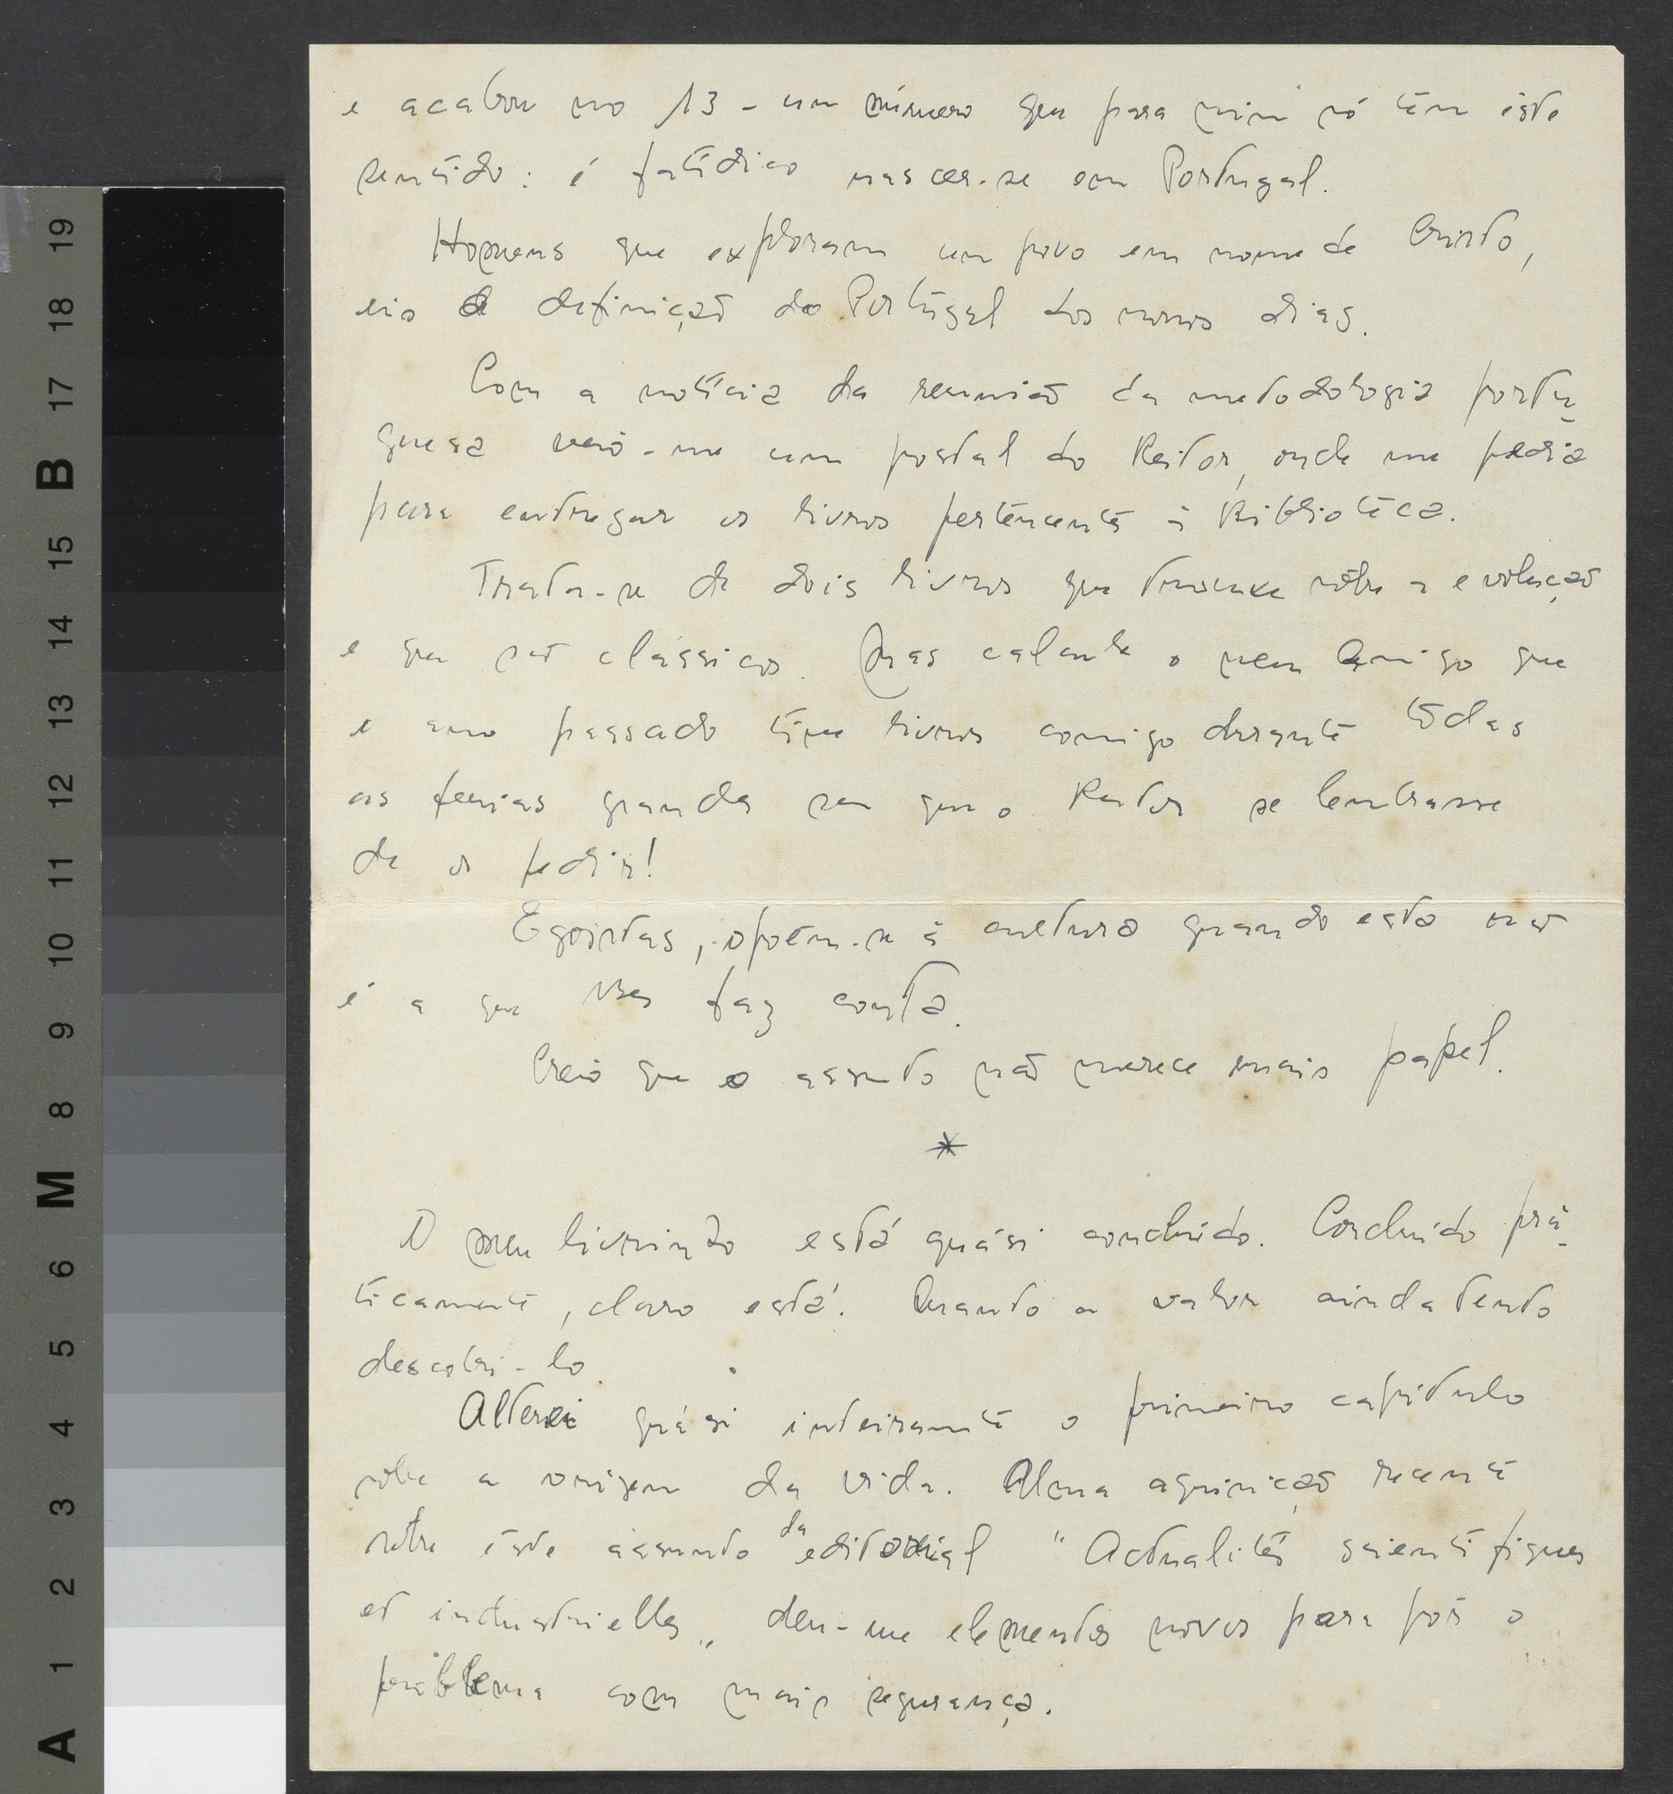 e acabou no 13 - um número que para mim só tem êste
sentido: é fatídico nascer-se em Portugal.
Homens que exploram um povo em nome de Cristo,
eis a definição do Portugal dos nossos dias.
Com a notícia da reunião da metodologia portu-
guesa veio-me um postal do Reitor, onde me pedia
para entregar os livros pertencentes à Biblioteca.
Trata-se de dois livros que trouxe sôbre a evolução
e que são clássicos. Mas calcule o meu Amigo que
o ano passado tive livros comigo durante tôdas
as ferias grandes sem que o Reitor se lembrasse
de os pedir!
Egoistas, opõem-se à cultura quando esta não
é a que lhes faz conta.
Creio que o assunto não merece mais papel.
*
O meu livrinho está quási concluído. Concluído prà-
ticamente, claro está. Quanto a valor ainda tento
descobri-lo.
Alterei quási inteiramente o primeiro capítulo
sôbre a origem da vida. Uma aquisição recente
sôbre êste assunto da editorial "Actualités scientifiques
et industrielles" deu-me elementos novos para pôr o
problema com mais segurança.
A 1 2 3 4 5 6 M 8 9 10 11 12 13 14 15 B 17 18 19